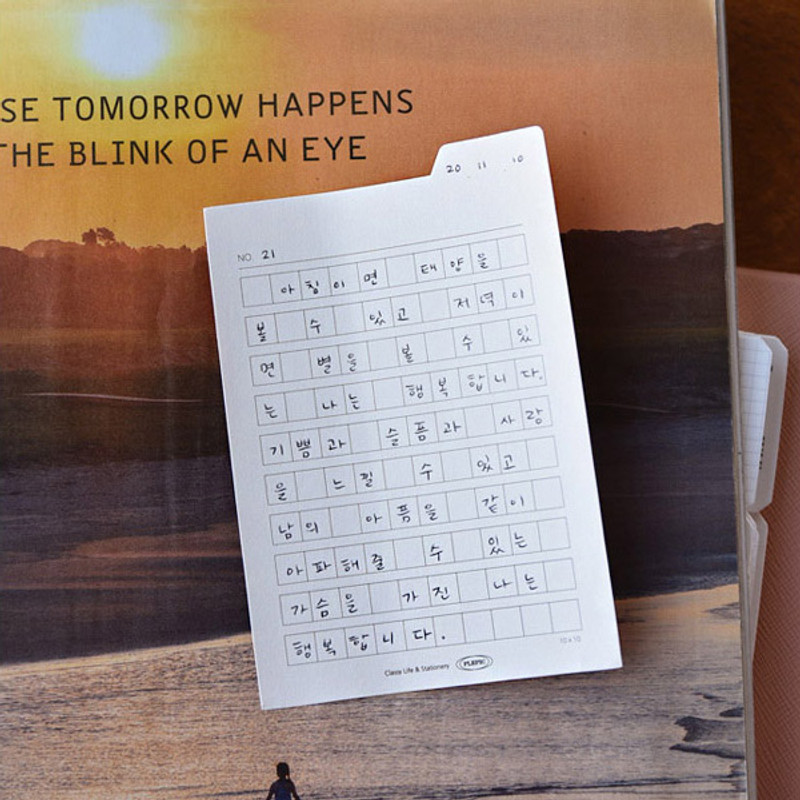 SE TOMORROW HAPPENS
THE BLINK OF AN EYE
20 11 10
NO. 21
아침이면 태양을
볼 수 있고 저녁이
면 별을 볼 수 있
는 나는 행복합니다.
기쁨과 슬픔과 사랑
을 느낄 수 있고
남의 아픔을 같이
아파해줄 수 있는
가슴을 가진 나는
행복합니다.
10 x 10
Classe Life & Stationery PLEPIC